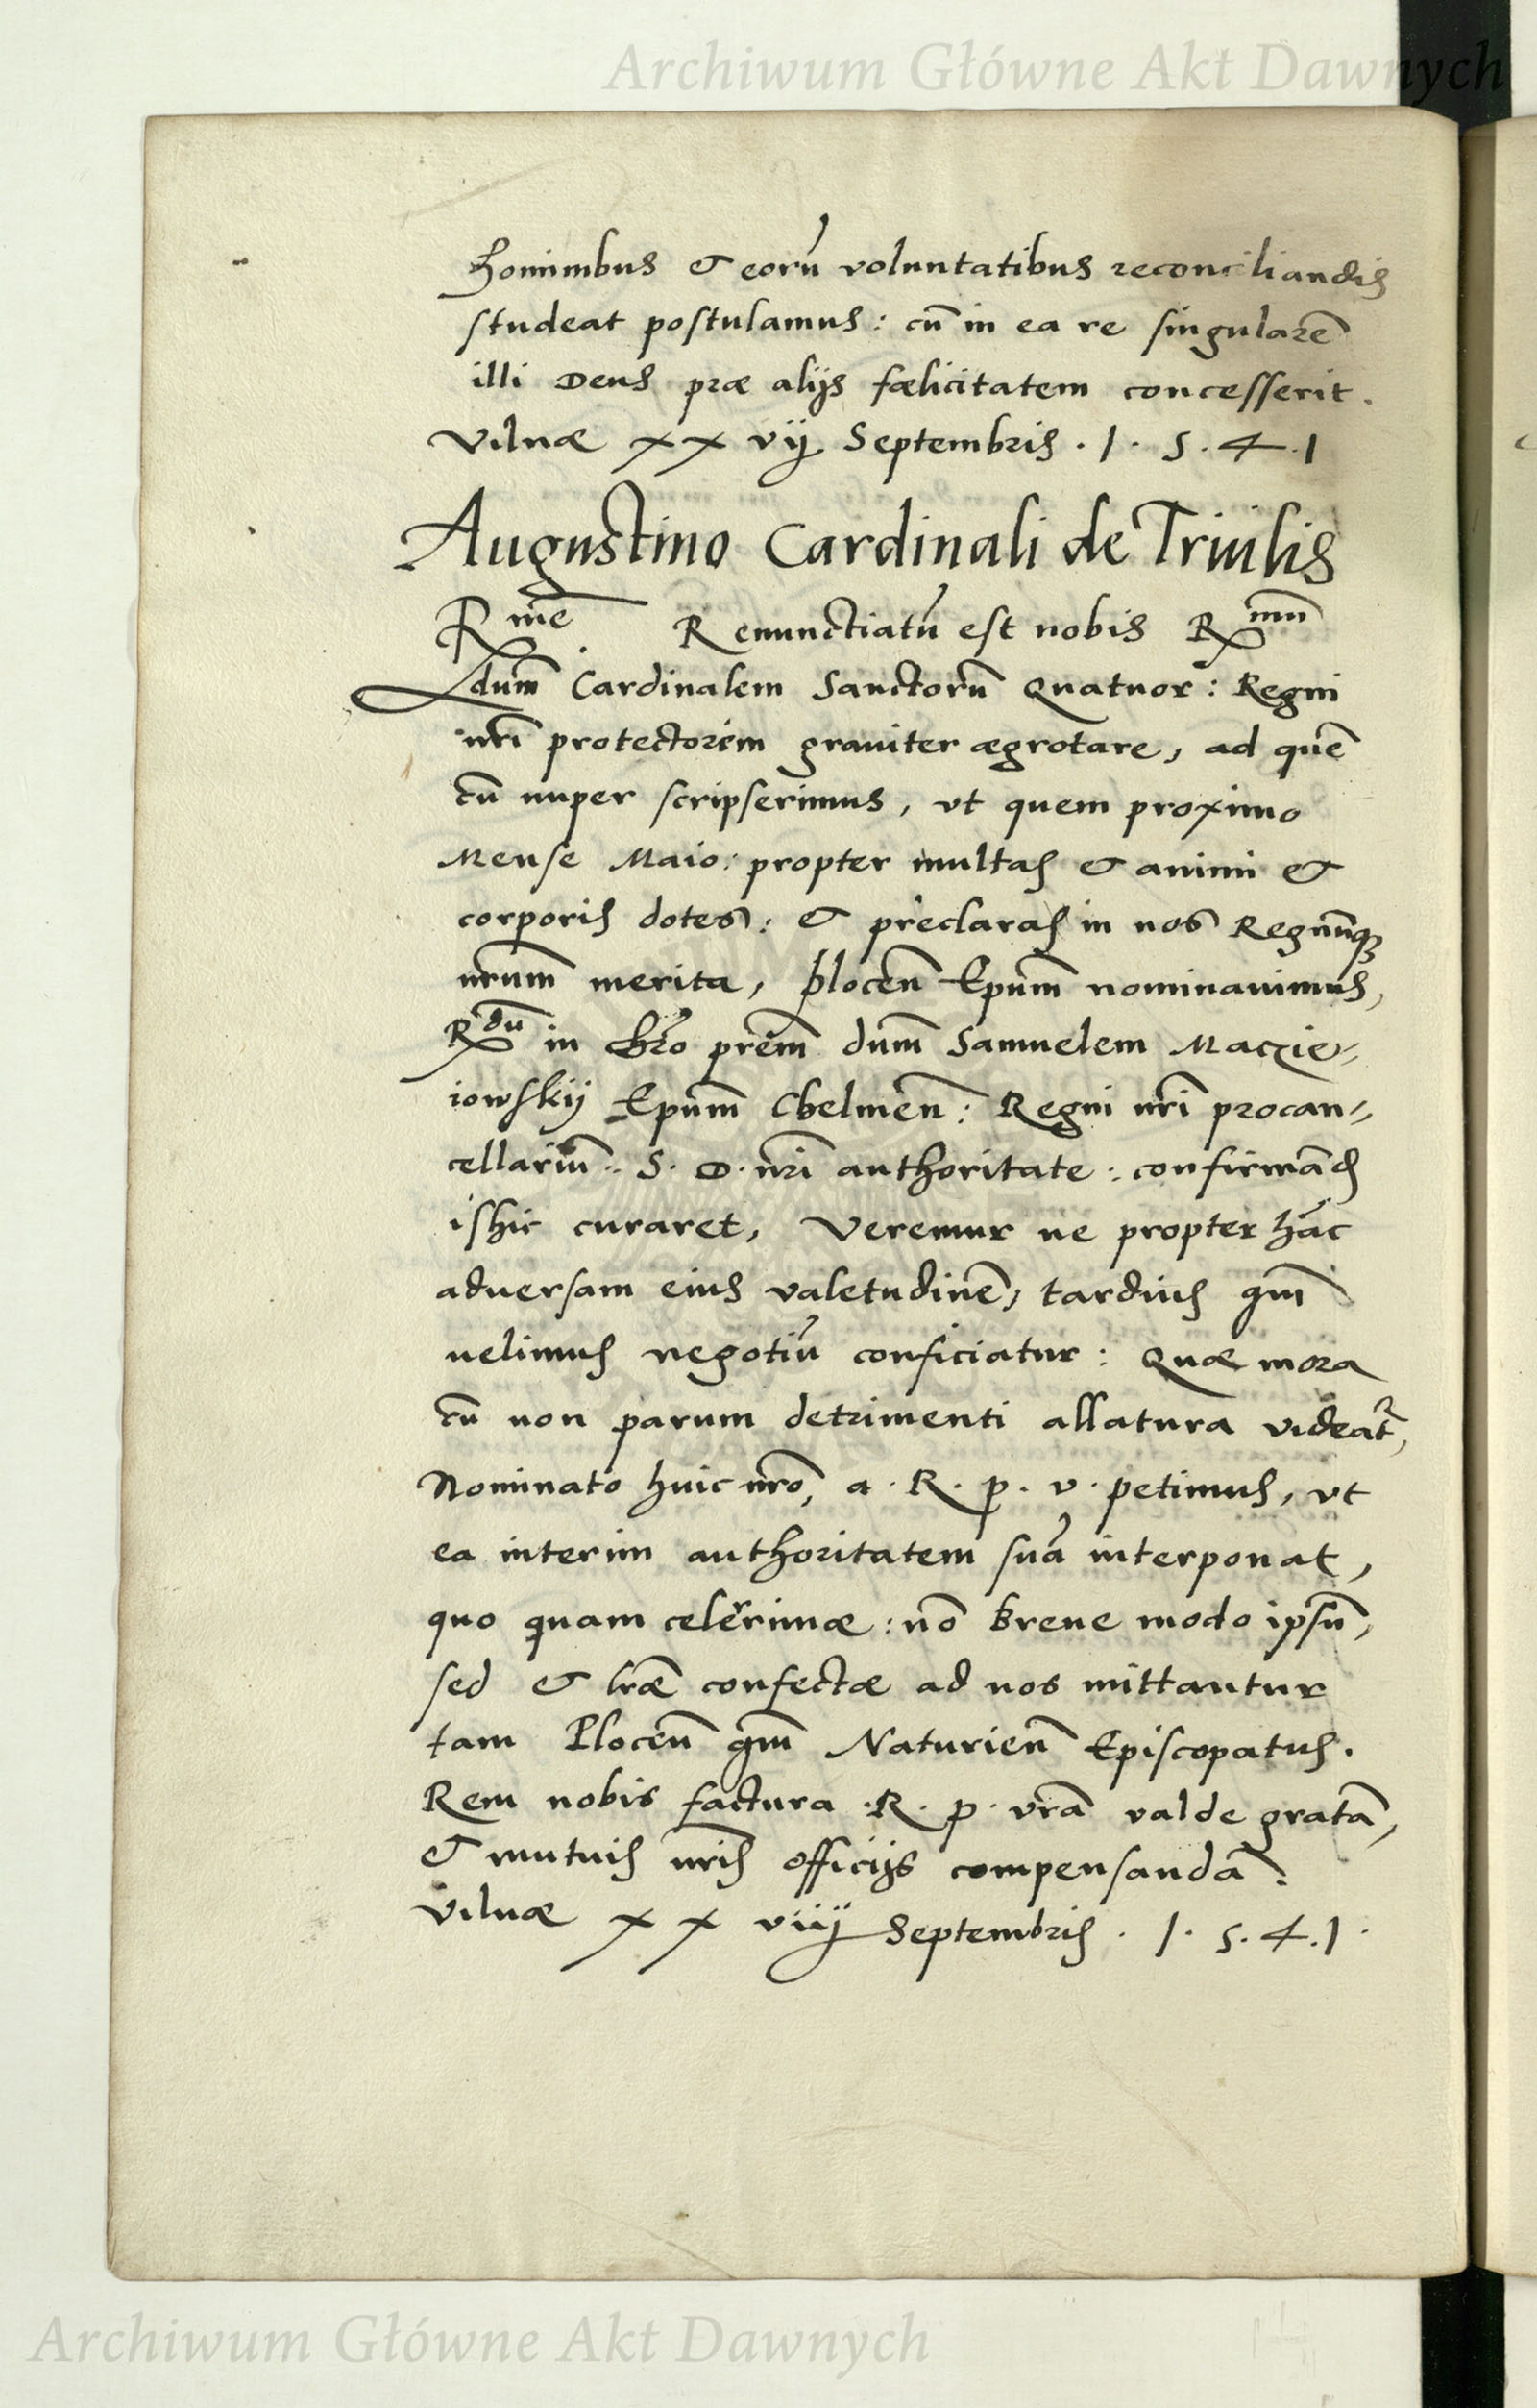 Archiwum Główne Akt Dawnych
hominibus & eorū voluntatibus reconciliandis
studeat postulamus: cū in ea re singularē
illi Deus præ alijs fœlicitatem concesserit.
Vilnæ xx vij Septembris . 1 . 5 . 4 . 1
Augustino Cardinali de Triulis
Rme. Renunctiatū est nobis Rmum
dnum Cardinalem Sanctorū Quatuor: Regni
nrī protectorem graviter ægrotare, ad quē
cū nuper scripserimus, ut quem proximo
Mense Maio: propter multas & animi &
corporis dotes: & preclaras in nos Regnūq;
nrum merita, plocen̄ Epum nominavimus,
Rdū in Chro prēm dnum Samuelem Maczie-
iowskij Epum Chelmen̄: Regni nrī procan-
cellariū: S. D. nrī authoritate: confirmād
isthic curaret, Veremur ne propter hāc
adversam eius valetudinē, tardius qm̄
velimus negotiū conficiatur: Quæ mora
cū non parum detrimenti allatura videatr,
Nominato huic nrō, a . R . p . v . petimus, ut
ea interim authoritatem suā interponat,
quo quam celerrimæ: nō breve modo ipsū,
sed & lræ confectæ ad nos mittantur
tam Plocen̄ qm̄ Naturien̄ Episcopatus.
Rem nobis factura . R . p . vrā valde gratā,
& mutuis nris officijs compensandā.
Vilnæ xx viij Septembris . 1 . 5 . 4 . 1 .
Archiwum Główne Akt Dawnych